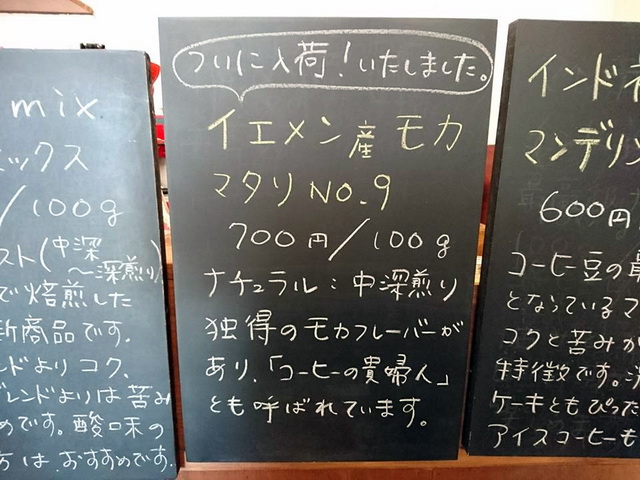 mix
ックス
/100g
スト(中深
～深煎り)
で焙煎した
新商品です。
ンドよりコク、
ブレンドよりは苦み
めです。酸味の
方は、おすすめです。
ついに入荷!いたしました。
イエメン産モカ
マタリNO.9
700円/100g
ナチュラル:中深煎り
独得のモカフレーバーが
あり、「コーヒーの貴婦人」
とも呼ばれています。
インドネ
マンデリン
600円
コーヒー豆の最
となっているマ
コクと苦みが
特徴です。
ケーキともぴった
アイスコーヒーも